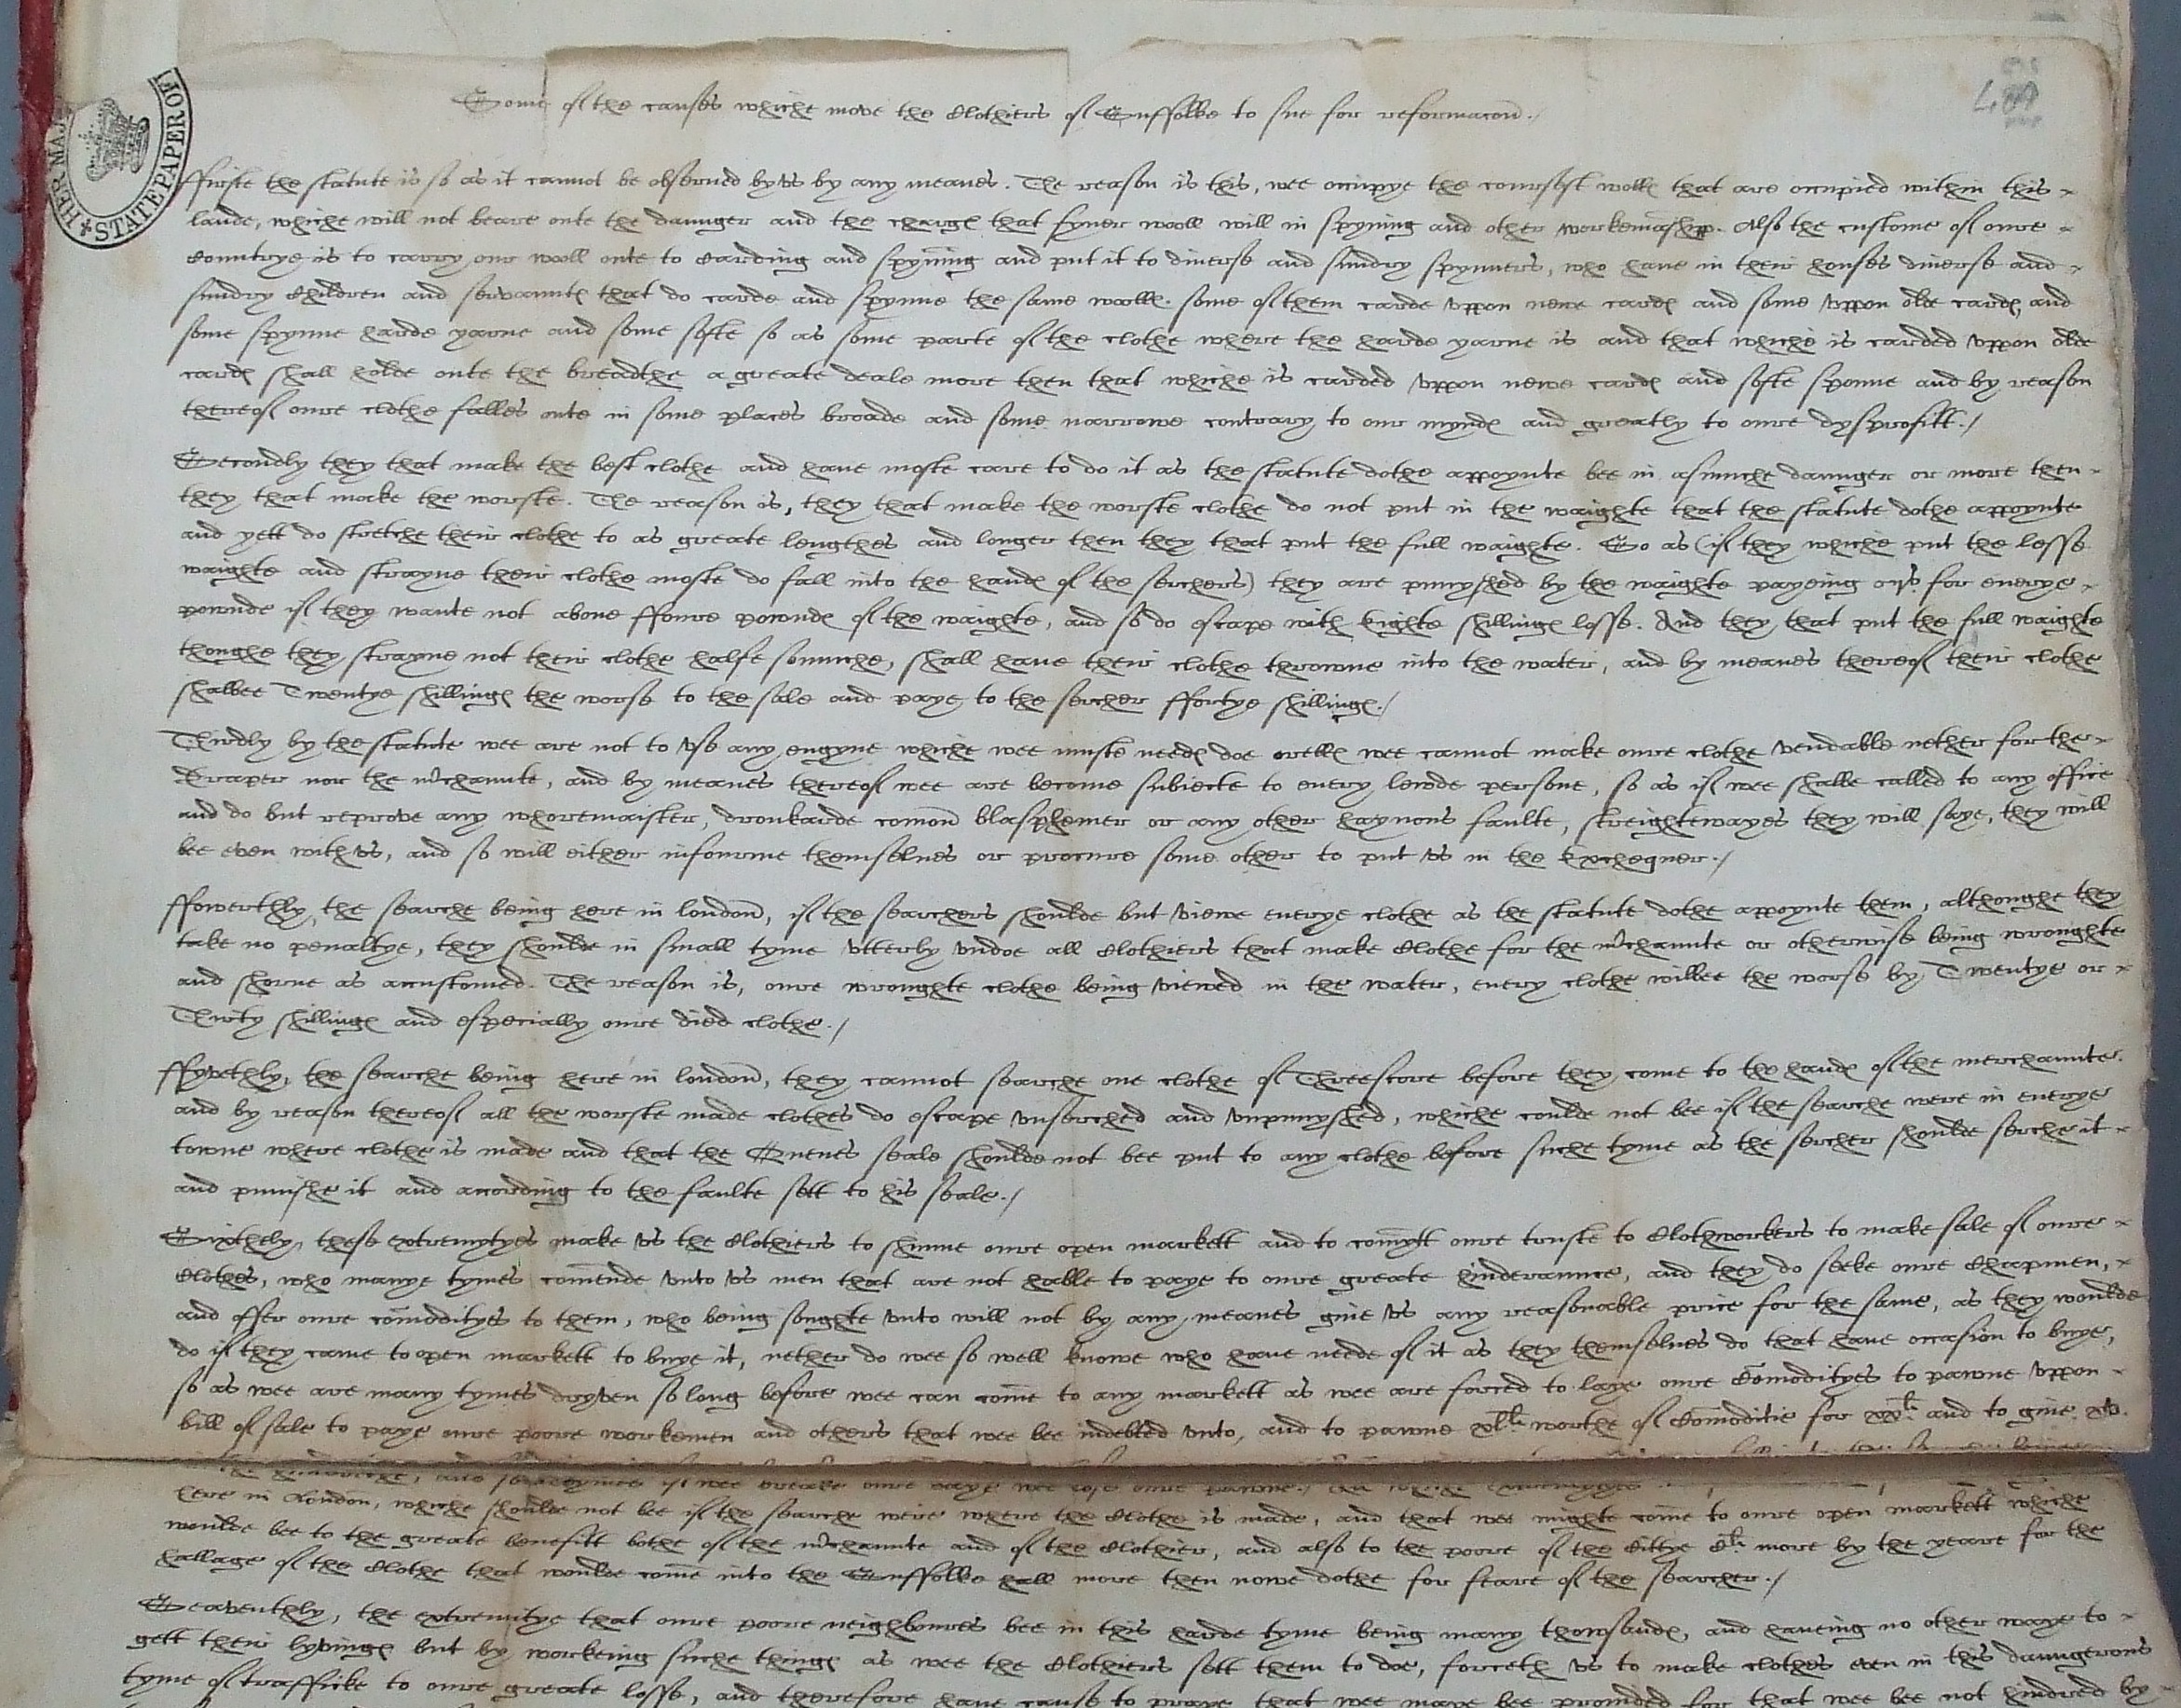 Some of the causes whiche move the Clothiers of Suffolke to sue for reformacon̄./
489
HER MAJ
STATE PAPER OF
ffirste the statute is so as it cannot be observed by vs by any meanes. The reason is this, wee occupye the coursest wolle that are occupied within this
lande, whiche will not beare oute the daunger and the charge that fyner wooll will in spynning and other workemashipp. Also the custome of oure
Countrye is to carry our wooll oute to Carding and spyñing and put it to diuerse and sundry spynners, who haue in their houses diuerse and
sundry Children and servauntes that do carde and spynne the same woolle. some of them carde vppon newe cardes and some vppon olde cardes, and
some spynne harde yarne and some softe so as some parte of the clothe where the harde yarne is and that whiche is carded vppon olde
cardes shall holde oute the breadthe a greate deale more then that whiche is carded vppon newe cardes and softe sponne and by reason
thereof oure clothe falles oute in some places broade and some narrowe contrary to our myndes and greatly to oure dysprofitt./
Secondly they that make the best clothe and haue moste care to do it as the statute dothe appoynte bee in asmuche daunger or more then
they that make the worste. The reason is, they that make the worste clothe do not put in the waighte that the statute dothe appoynte
and yett do stretche their clothe to as greate lengthes and longer then they that put the full waighte. So as (if they whiche put the lesse
waighte and strayne their clothe moste do fall into the handes of the serchers) they are punyshed by the waighte payeing ijs. for euerye
pownde if they wante not aboue ffoure powndes of the waighte, and so do escape with Eighte shillinges losse. And they that put the full waighte
thoughe they strayne not their clothe halfe somuche, shall haue their clothe throwne into the water, and by meanes thereof their clothe
shalbee Twentye shillinges the worse to the sale and paye to the sercher ffortye shillinges./
Thirdly by the statute wee are not to vse any engyne whiche wee muste needes doe orelles wee cannot make oure clothe vendable nether for the
Draper nor the m̃chaunte, and by meanes thereof wee are become subiecte to euery lewde persone, so as if wee shalbe called to any office
and do but reprove any whoremaister, dronkarde com̄on̄ blasphemer or any other haynous faulte, streightewayes they will saye, they will
bee even with vs, and so will either infourme themselues or procure some other to put vs in the Exchequer./
ffowerthly, the searche being here in london̄, if the searchers shoulde but viewe euerye clothe as the statute dothe appoynte them, althoughe they
take no penaltye, they shoulde in small tyme vtterly vndoe all Clothiers that make Clothe for the m̃chaunte or otherwise being wroughte
and shorne as accustomed. The reason is, oure wroughte clothe being viewed in the water, euery clothe wilbee the worse by Twentye or
Thirty shillinges and especially oure died clothe./
ffyvethly, the searche being here in london̄, they cannot searche one clothe of Threescore before they come to the handes of the merchauntes
and by reason thereof all the worste made clothes do escape vnserched and vnpunyshed, whiche coulde not bee if the searche were in euerye
towne where clothe is made and that the Quenes seale shoulde not bee put to any clothe before suche tyme as the sercher shoulde serche it
and punishe it and according to the faulte sett to his seale./
Sixthely, these extremytyes make vs the Clothiers to shunne oure open markett and to com̄ytt oure truste to Clothworkers to make sale of oure
Clothes, who manye tymes com̄ende vnto vs men that are not hable to paye to oure greate hinderaunce, and they do seeke oure Chapmen,
and offer oure com̄odityes to them, who being soughte vnto will not by any meanes giue vs any reasonable price for the same, as they woulde
do if they came to open markett to buye it, nether do wee so well knowe who haue neede of it as they themselues do that haue occasion to buye,
so as wee are many tymes dryven so long before wee can com̄e to any markett as wee are forced to laye oure Com̄odityes to pawne vppon
bill of sale to paye oure poore workemen and others that wee bee indebted vnto, and to pawne xlli. worthe of Com̄oditie for xxli. and to giue xv.
and sometymes if wee breake oure daye wee lose oure pawne./
here in London̄, whiche shoulde not bee if the searche were where the Clothe is made, and that wee mighte com̄e to oure open markett whiche
woulde bee to the greate benefitt bothe of the m̃chaunte and of the Clothier, and also to the poore of the Cittye Cli. more by the yeare for the
hallage of the Clothe that woulde com̄e into the Suffolke hall more then nowe dothe for feare of the searcher./
Seaventhly, the extremitye that oure poore neighboures bee in this harde tyme being many thowsandes, and haueing no other waye to
gett their lyvinges but by workeing suche thinges as wee the Clothiers sett them to doe, forceth vs to make clothes even in this daungerous
tyme of trafficke to oure greate losse, and therefore haue cause to praye that wee maye bee prouided for that wee bee not hindred by